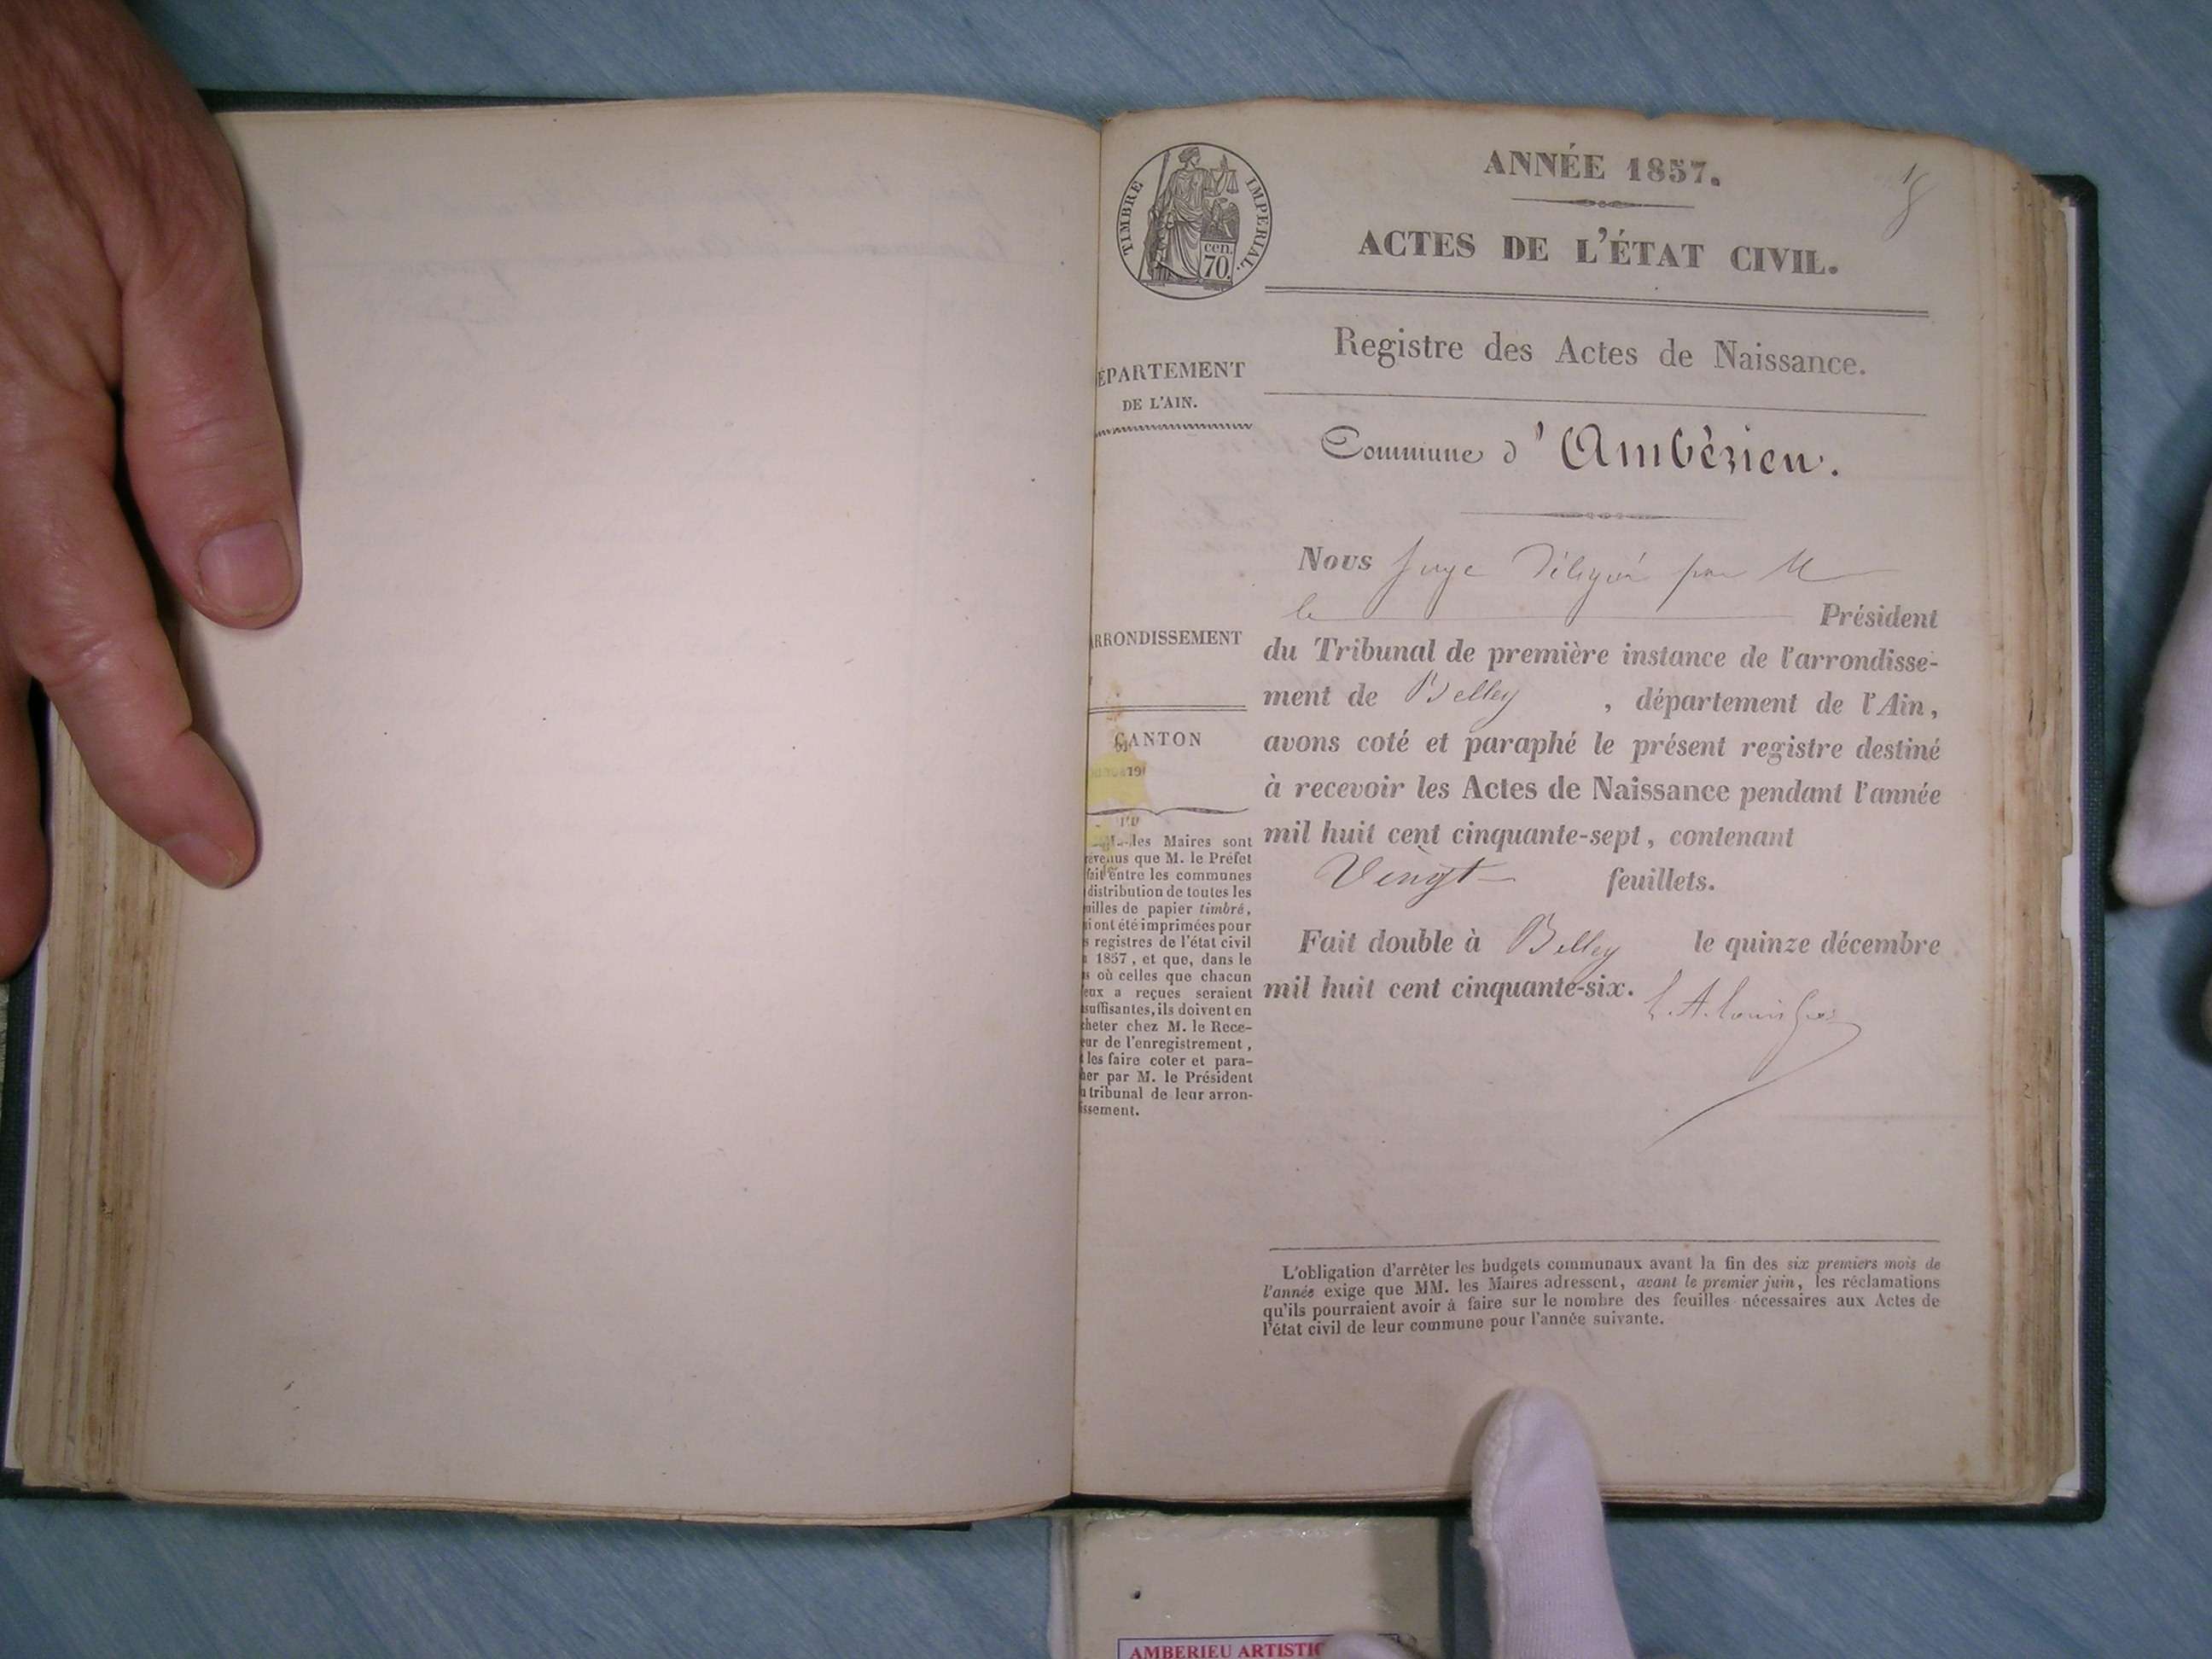 ANNÉE 1857.
TIMBRE IMPERIAL.
cen.
70.
ACTES DE L'ÉTAT CIVIL.
Registre des Actes de Naissance.
ÉPARTEMENT
DE L'AIN.
Commune d'Ambérieu.
Nous Juge Délégué par M
le Président
ARRONDISSEMENT
du Tribunal de première instance de l'arrondisse-
ment de Belley , département de l'Ain,
CANTON
avons coté et paraphé le présent registre destiné
à recevoir les Actes de Naissance pendant l'année
mil huit cent cinquante-sept, contenant
Vingt feuillets.
Fait double à Belley le quinze décembre
mil huit cent cinquante-six.
les Maires sont
evenus que M. le Préfet
fait entre les communes
distribution de toutes les
uilles de papier timbré,
i ont été imprimées pour
s registres de l'état civil
1857, et que, dans le
s où celles que chacun
eux a reçues seraient
suffisantes, ils doivent en
cheter chez M. le Rece-
eur de l'enregistrement,
les faire coter et para-
her par M. le Président
u tribunal de leur arron-
issement.
L'obligation d'arrêter les budgets communaux avant la fin des six premiers mois de
l'année exige que MM. les Maires adressent, avant le premier juin, les réclamations
qu'ils pourraient avoir à faire sur le nombre des feuilles nécessaires aux Actes de
l'état civil de leur commune pour l'année suivante.
AMBERIEU ARTISTIC